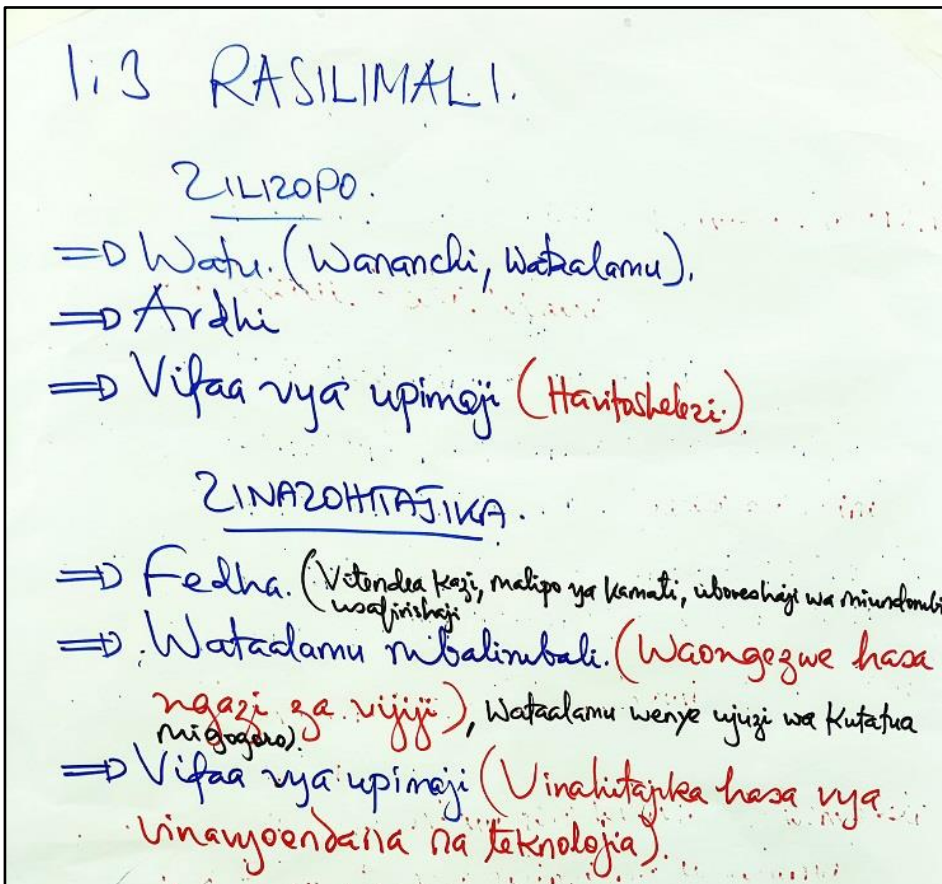 1.3 RASILIMALI.
ZILIZOPO.
=> Watu. (Wananchi, Wataalamu).
=> Ardhi
=> Vifaa vya upimaji (Havitoshelezi.)
ZINAZOHITAJIKA.
=> Fedha. (Vitendea kazi, malipo ya kamati, uboreshaji wa miundombi
usafirishaji
=> Wataalamu mbalimbali. (Waongezwe hasa
ngazi za vijiji), Wataalamu wenye ujuzi wa Kutatua
migogoro).
=> Vifaa vya upimaji (Vinahitajika hasa vya
vinavyoendana na teknolojia).